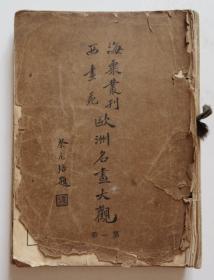 海粟叢刊
西畫苑
歐洲名畫大觀
蔡元培題
第